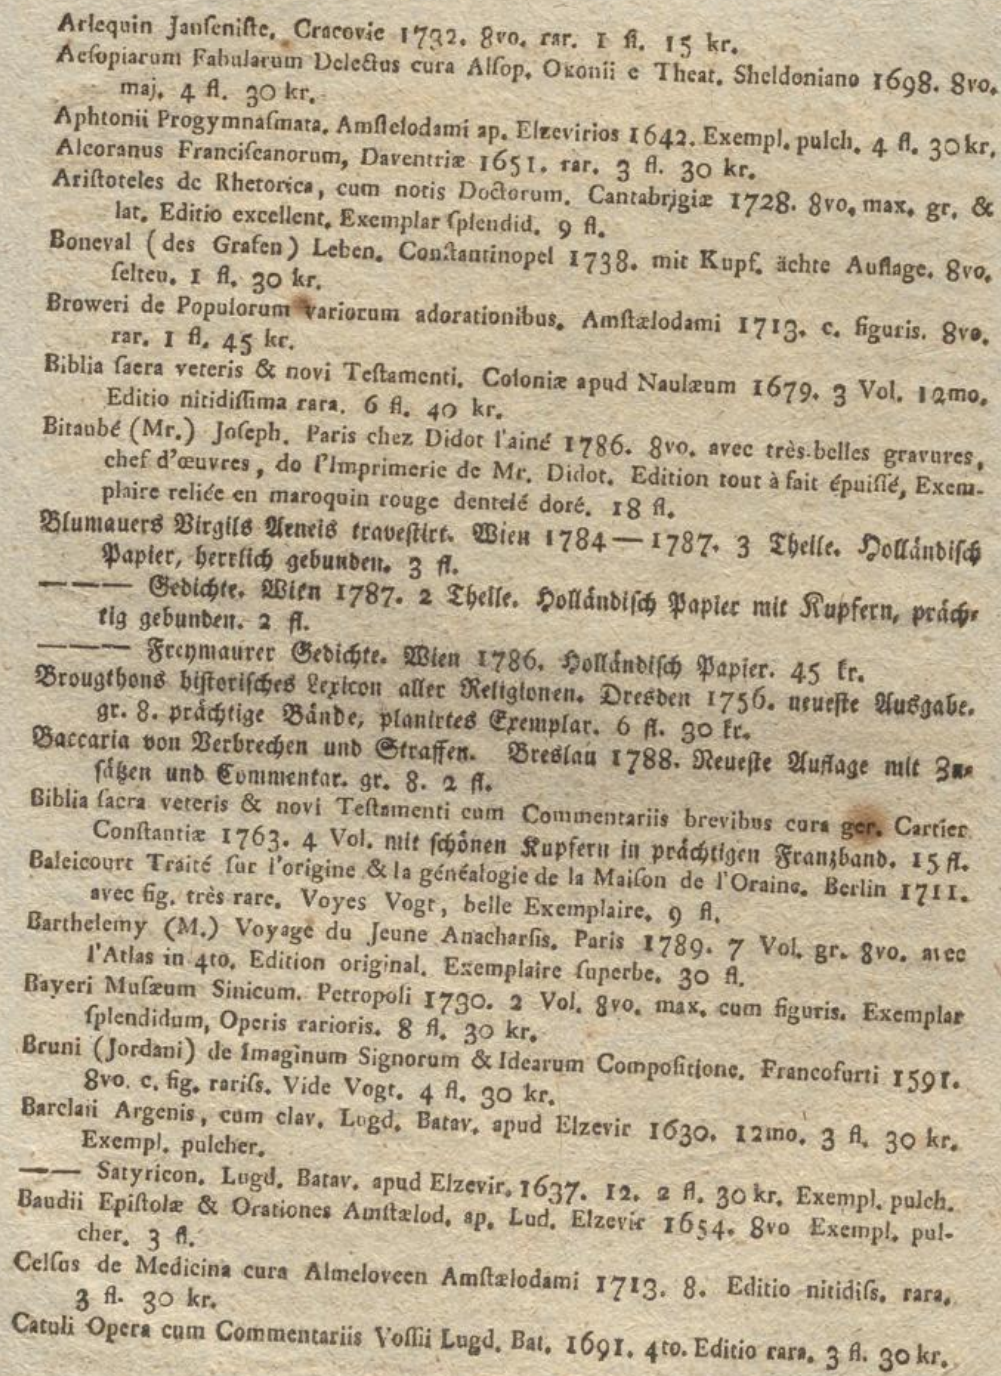 Arlequin Janſeniſte. Cracovie 1732. 8vo. rar. 1 fl. 15 kr.
Aeſopiarum Fabularum Delectus cura Alſop. Oxonii e Theat. Sheldoniano 1698. 8vo.
maj. 4 fl. 30 kr.
Aphtonii Progymnaſmata. Amſtelodami ap. Elzevirios 1642. Exempl. pulch. 4 fl. 30 kr.
Alcoranus Franciſcanorum, Daventriæ 1651. rar. 3 fl. 30 kr.
Ariſtoteles de Rhetorica, cum notis Doctorum. Cantabrigiæ 1728. 8vo. max. gr. &
lat. Editio excellent. Exemplar ſplendid. 9 fl.
Boneval (des Grafen) Leben. Conſtantinopel 1738. mit Kupf. ächte Auflage. 8vo.
ſelten. 1 fl. 30 kr.
Broweri de Populorum variorum adorationibus. Amſtælodami 1713. c. figuris. 8vo.
rar. 1 fl. 45 kr.
Biblia ſacra veteris & novi Teſtamenti. Coloniæ apud Naulæum 1679. 3 Vol. 12mo.
Editio nitidiſſima rara. 6 fl. 40 kr.
Bitaubé (Mr.) Joſeph. Paris chez Didot l'ainé 1786. 8vo. avec très-belles gravures,
chef d'œuvres, do l'Imprimerie de Mr. Didot. Edition tout à fait épuiſſé, Exem-
plaire reliée en maroquin rouge dentelé doré. 18 fl.
Blumauers Virgils Aeneis traveſtirt. Wien 1784—1787. 3 Theile. Holländiſch
Papier, herrlich gebunden. 3 fl.
——— Gedichte. Wien 1787. 2 Theile. Holländiſch Papier mit Kupfern, präch-
tig gebunden. 2 fl.
——— Freymaurer Gedichte. Wien 1786. Holländiſch Papier. 45 kr.
Brougthons hiſtoriſches Lexicon aller Religionen. Dresden 1756. neueſte Ausgabe.
gr. 8. prächtige Bände, planirtes Exemplar. 6 fl. 30 kr.
Baccaria von Verbrechen und Straffen. Breslau 1788. Neueſte Auflage mit Zu-
ſätzen und Commentar. gr. 8. 2 fl.
Biblia ſacra veteris & novi Teſtamenti cum Commentariis brevibus cura ger. Cartier
Conſtantiæ 1763. 4 Vol. mit ſchönen Kupfern in prächtigen Franzband. 15 fl.
Baleicourt Traité ſur l'origine & la généalogie de la Maiſon de l'Oraine. Berlin 1711.
avec fig. très rare. Voyes Vogt, belle Exemplaire. 9 fl.
Barthelemy (M.) Voyage du Jeune Anacharſis. Paris 1789. 7 Vol. gr. 8vo. avec
l'Atlas in 4to. Edition original. Exemplaire ſuperbe. 30 fl.
Bayeri Muſæum Sinicum. Petropoli 1730. 2 Vol. 8vo. max. cum figuris. Exemplar
ſplendidum, Operis rarioris. 8 fl. 30 kr.
Bruni (Jordani) de Imaginum Signorum & Idearum Compoſitione. Francofurti 1591.
8vo. c. fig. rariſs. Vide Vogt. 4 fl. 30 kr.
Barclaii Argenis, cum clav. Lugd. Batav. apud Elzevir 1630. 12mo. 3 fl. 30 kr.
Exempl. pulcher.
—— Satyricon. Lugd. Batav. apud Elzevir. 1637. 12. 2 fl. 30 kr. Exempl. pulch.
Baudii Epiſtolæ & Orationes Amſtælod. ap. Lud. Elzevir 1654. 8vo Exempl. pul-
cher. 3 fl.
Celſos de Medicina cura Almeloveen Amſtælodami 1713. 8. Editio nitidiſs. rara.
3 fl. 30 kr.
Catuli Opera cum Commentariis Voſſii Lugd. Bat. 1691. 4to. Editio rara. 3 fl. 30 kr.